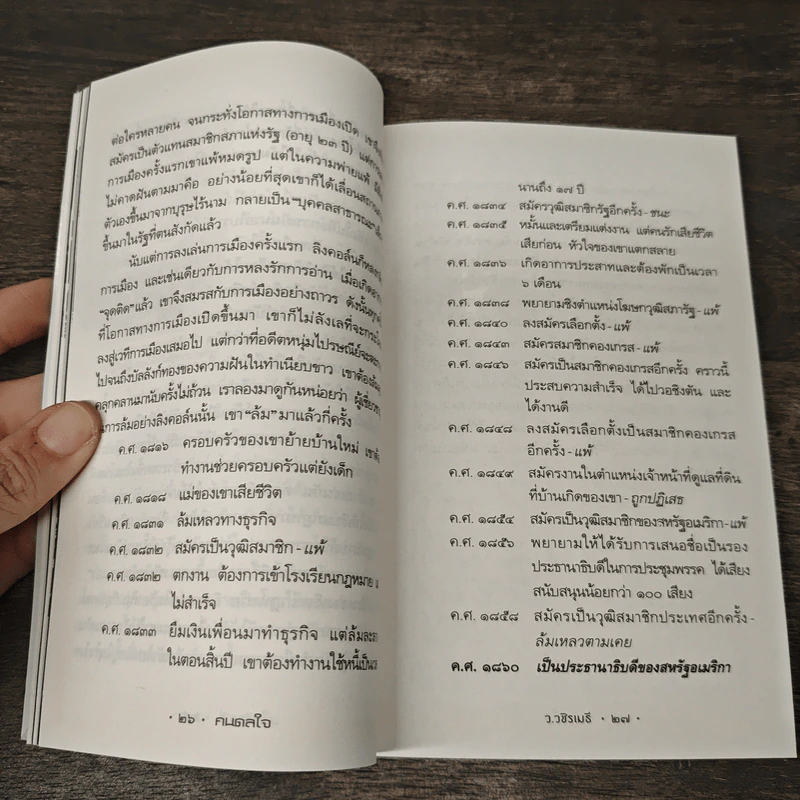 ต่อใครหลายคน จนกระทั่งโอกาสทางการเมืองเปิด
สมัครเป็นตัวแทนสมาชิกสภาแห่งรัฐ (อายุ ๒๓ ปี)
การเมืองครั้งแรกเขาแพ้หมดรูป แต่ในความพ่ายแพ้
ไม่คาดฝันตามมาคือ อย่างน้อยที่สุดเขาก็ได้เลื่อน
ตัวเองขึ้นมาจากบุรุษไร้นาม กลายเป็น "บุคคลสาธารณะ"
ขึ้นมาในรัฐที่ตนสังกัดแล้ว
นับแต่การลงเล่นการเมืองครั้งแรก ลิงคอล์นก็
การเมือง และเช่นเดียวกับการหลงรักการอ่าน เมื่อเกิด
"จุดติด" แล้ว เขาจึงสมรสกับการเมืองอย่างถาวร
ที่โอกาสทางการเมืองเปิดขึ้นมา เขาก็ไม่ลังเลที่จะ
ลงสู่เวทีการเมืองเสมอไป แต่กว่าที่อดีตหนุ่มไปรษณีย์
ไปจนถึงบัลลังก์ทองของความฝันในทำเนียบขาว เขาต้อง
คลุกคลานมานับครั้งไม่ถ้วน เราลองมาดูกันหน่อยว่า
การล้มอย่างลิงคอล์นนั้น เขา "ล้ม" มาแล้วกี่ครั้ง
ค.ศ. ๑๘๑๖ ครอบครัวของเขาย้ายบ้านใหม่
ทำงานช่วยครอบครัวแต่ยังเด็ก
ค.ศ. ๑๘๑๘ แม่ของเขาเสียชีวิต
ค.ศ. ๑๘๓๑ ล้มเหลวทางธุรกิจ
ค.ศ. ๑๘๓๒ สมัครเป็นวุฒิสมาชิก - แพ้
ค.ศ. ๑๘๓๒ ตกงาน ต้องการเข้าโรงเรียนกฎหมาย
ไม่สำเร็จ
ค.ศ. ๑๘๓๓ ยืมเงินเพื่อนมาทำธุรกิจ แต่ล้ม
ในตอนสิ้นปี เขาต้องทำงานใช้หนี้
• ๒๖ • คนดลใจ
นานถึง ๑๗ ปี
ค.ศ. ๑๘๓๔ สมัครวุฒิสมาชิกรัฐอีกครั้ง - ชนะ
ค.ศ. ๑๘๓๕ หมั้นและเตรียมแต่งงาน แต่คนรักเสียชีวิต
เสียก่อน หัวใจของเขาแตกสลาย
ค.ศ. ๑๘๓๖ เกิดอาการประสาทและต้องพักเป็นเวลา
๖ เดือน
ค.ศ. ๑๘๓๘ พยายามชิงตำแหน่งโฆษกวุฒิสภารัฐ - แพ้
ค.ศ. ๑๘๔๐ ลงสมัครเลือกตั้ง - แพ้
ค.ศ. ๑๘๔๓ สมัครสมาชิกคองเกรส - แพ้
ค.ศ. ๑๘๔๖ สมัครเป็นสมาชิกคองเกรสอีกครั้ง คราวนี้
ประสบความสำเร็จ ได้ไปวอชิงตัน และ
ได้งานดี
ค.ศ. ๑๘๔๘ ลงสมัครเลือกตั้งเป็นสมาชิกคองเกรส
อีกครั้ง - แพ้
ค.ศ. ๑๘๔๙ สมัครงานในตำแหน่งเจ้าหน้าที่ดูแลที่ดิน
ที่บ้านเกิดของเขา - ถูกปฏิเสธ
ค.ศ. ๑๘๕๔ สมัครเป็นวุฒิสมาชิกของสหรัฐอเมริกา - แพ้
ค.ศ. ๑๘๕๖ พยายามให้ได้รับการเสนอชื่อเป็นรอง
ประธานาธิบดีในการประชุมพรรค ได้เสียง
สนับสนุนน้อยกว่า ๑๐๐ เสียง
ค.ศ. ๑๘๕๘ สมัครเป็นวุฒิสมาชิกประเทศอีกครั้ง -
ล้มเหลวตามเคย
ค.ศ. ๑๘๖๐ เป็นประธานาธิบดีของสหรัฐอเมริกา
ว.วชิรเมธี • ๒๗ •